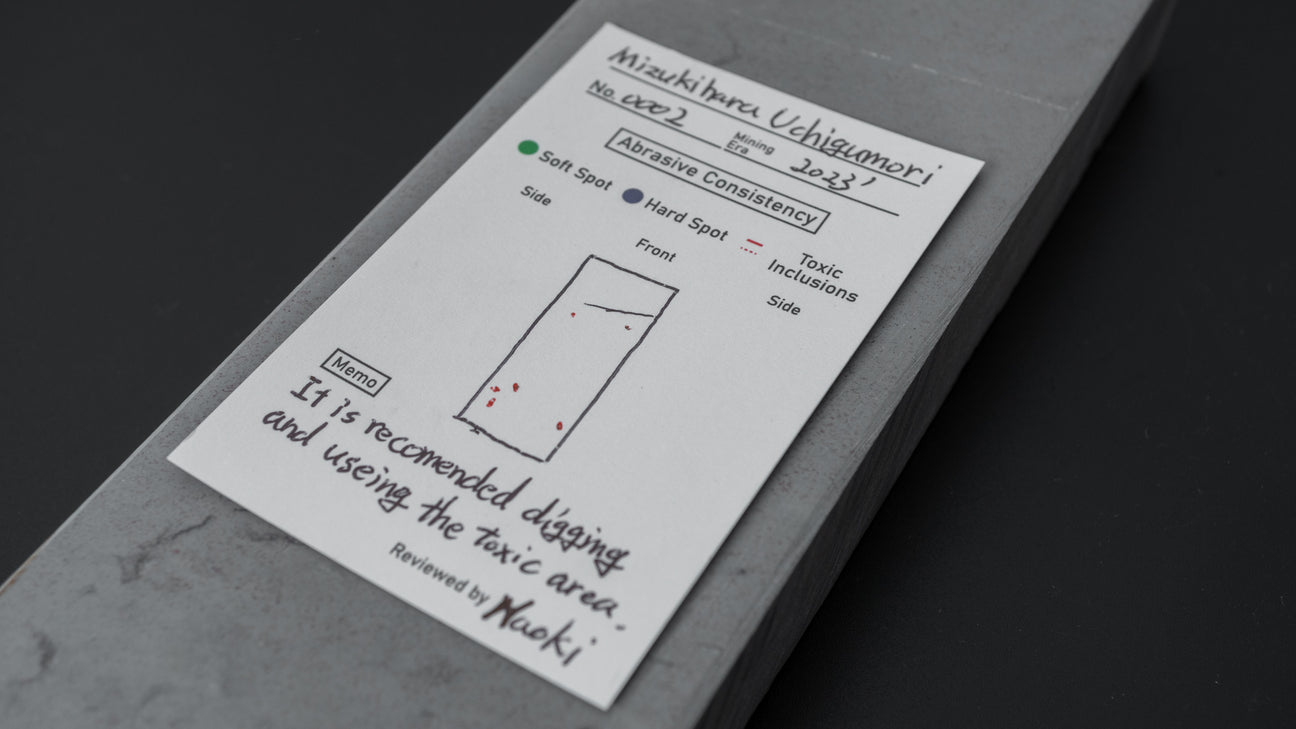 Mizukihara Uchigumori
No. 0002 Mining Era 2023'
Abrasive Consistency
Soft Spot Hard Spot Toxic Inclusions
Side Front Side
Memo
It is recomended digging
and useing the toxic area.
Reviewed by Naoki